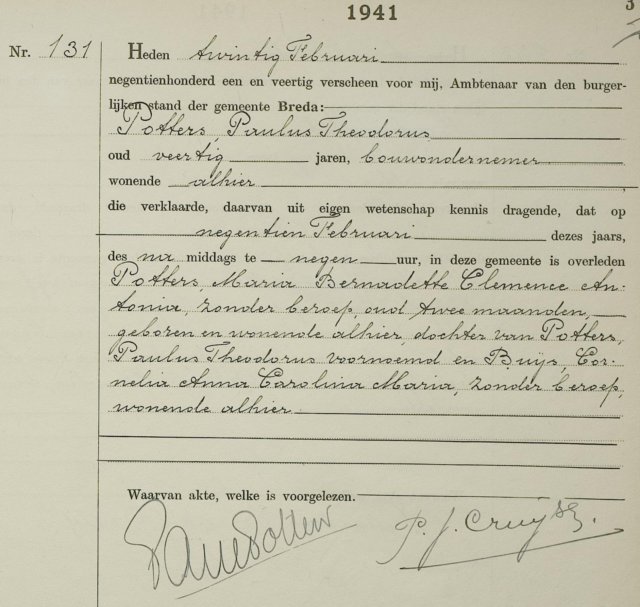 1941
3
Nr. 131 Heden twintig Februari
negentienhonderd een en veertig verscheen voor mij, Ambtenaar van den burger-
lijken stand der gemeente Breda:
Potters, Paulus Theodorus
oud veertig jaren, bouwondernemer
wonende alhier
die verklaarde, daarvan uit eigen wetenschap kennis dragende, dat op
negentien Februari dezes jaars,
des na middags te negen uur, in deze gemeente is overleden
Potters, Maria Bernadette Clemence An-
tonia, zonder beroep, oud twee maanden,
geboren en wonende alhier, dochter van Potters,
Paulus Theodorus voornoemd en Buijs, Cor-
nelia Anna Carolina Maria, zonder beroep,
wonende alhier
Waarvan akte, welke is voorgelezen.
P. J. Cruijsen.